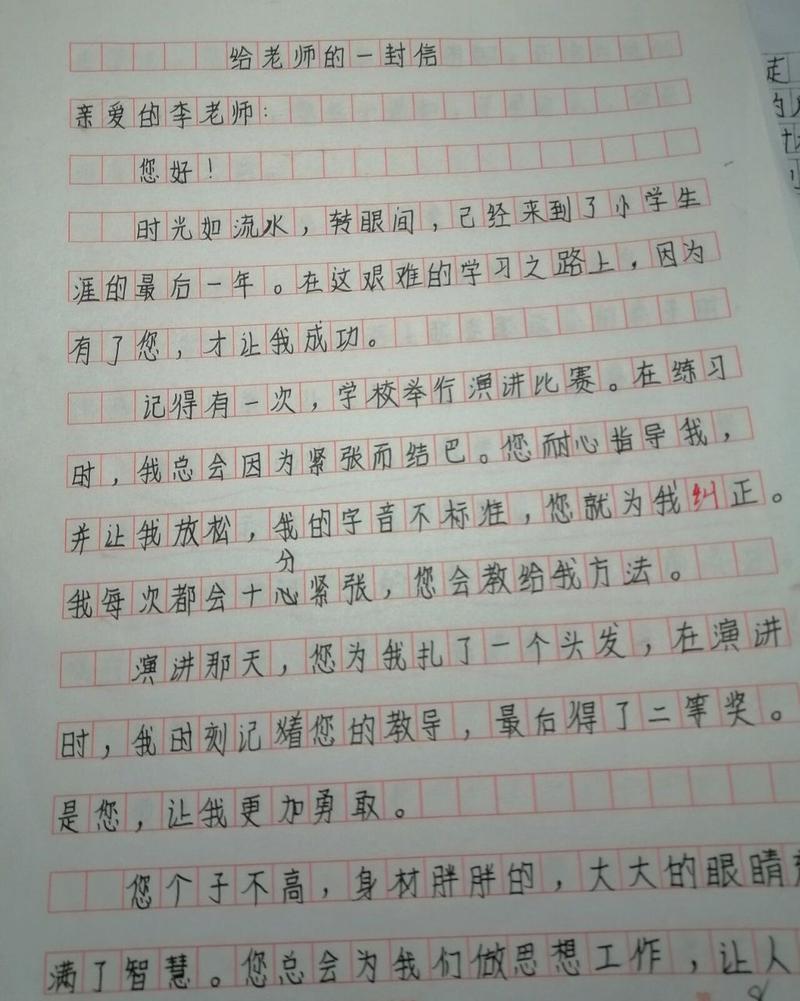 给老师的一封信
亲爱的李老师：
您好！
时光如流水，转眼间，已经来到了小学生
涯的最后一年。在这艰难的学习之路上，因为
有了您，才让我成功。
记得有一次，学校举行演讲比赛。在练习
时，我总会因为紧张而结巴。您耐心指导我，
并让我放松，我的字音不标准，您就为我纠正。
分
我每次都会十心紧张，您会教给我方法。
演讲那天，您为我扎了一个头发，在演讲
时，我时刻记着您的教导，最后得了二等奖。
是您，让我更加勇敢。
您个子不高，身材胖胖的，大大的眼睛
满了智慧。您总会为我们做思想工作，让人
走